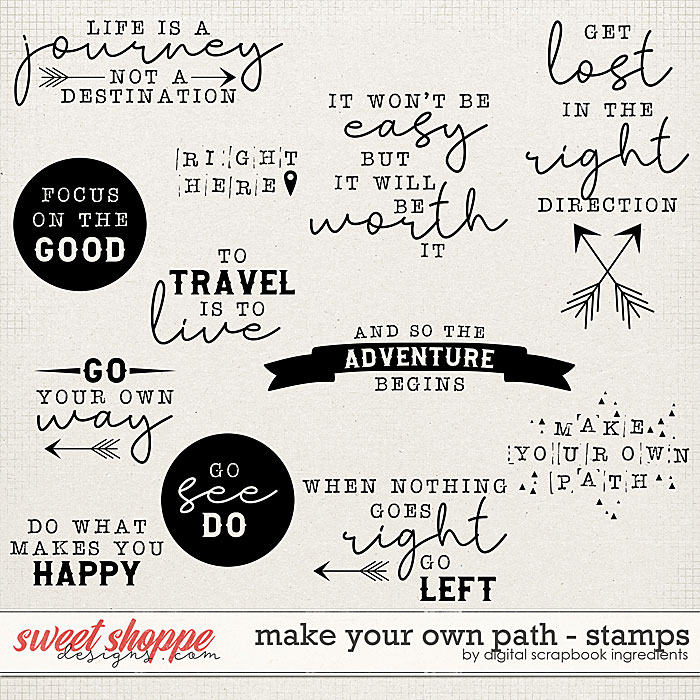 LIFE IS A
journey
NOT A
DESTINATION
GET
lost
IN THE
right
DIRECTION
IT WON'T BE
easy
BUT
IT WILL
BE
worth
IT
RIGHT
HERE
FOCUS
ON THE
GOOD
TO
TRAVEL
IS TO
live
AND SO THE
ADVENTURE
BEGINS
GO
YOUR OWN
way
MAKE
YOUR OWN
PATH
GO
see
DO
WHEN NOTHING
GOES
right
GO
LEFT
DO WHAT
MAKES YOU
HAPPY
sweet shoppe
designs.com
make your own path - stamps
by digital scrapbook ingredients